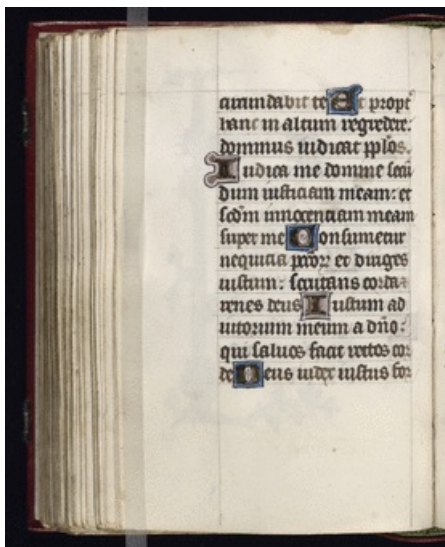 cumdabit te Et propt
hanc in altum regredere:
dominus iudicat pplos.
Iudica me domine secu
dum iusticiam meam: et
scdm innocenciam meam
super me Consumetur
nequicia pctorz et diriges
iustum: scrutans corda
renes deus Iustum ad
iutorium meum a dno:
qui saluos facit rectos cor
de Deus iudex iustus for